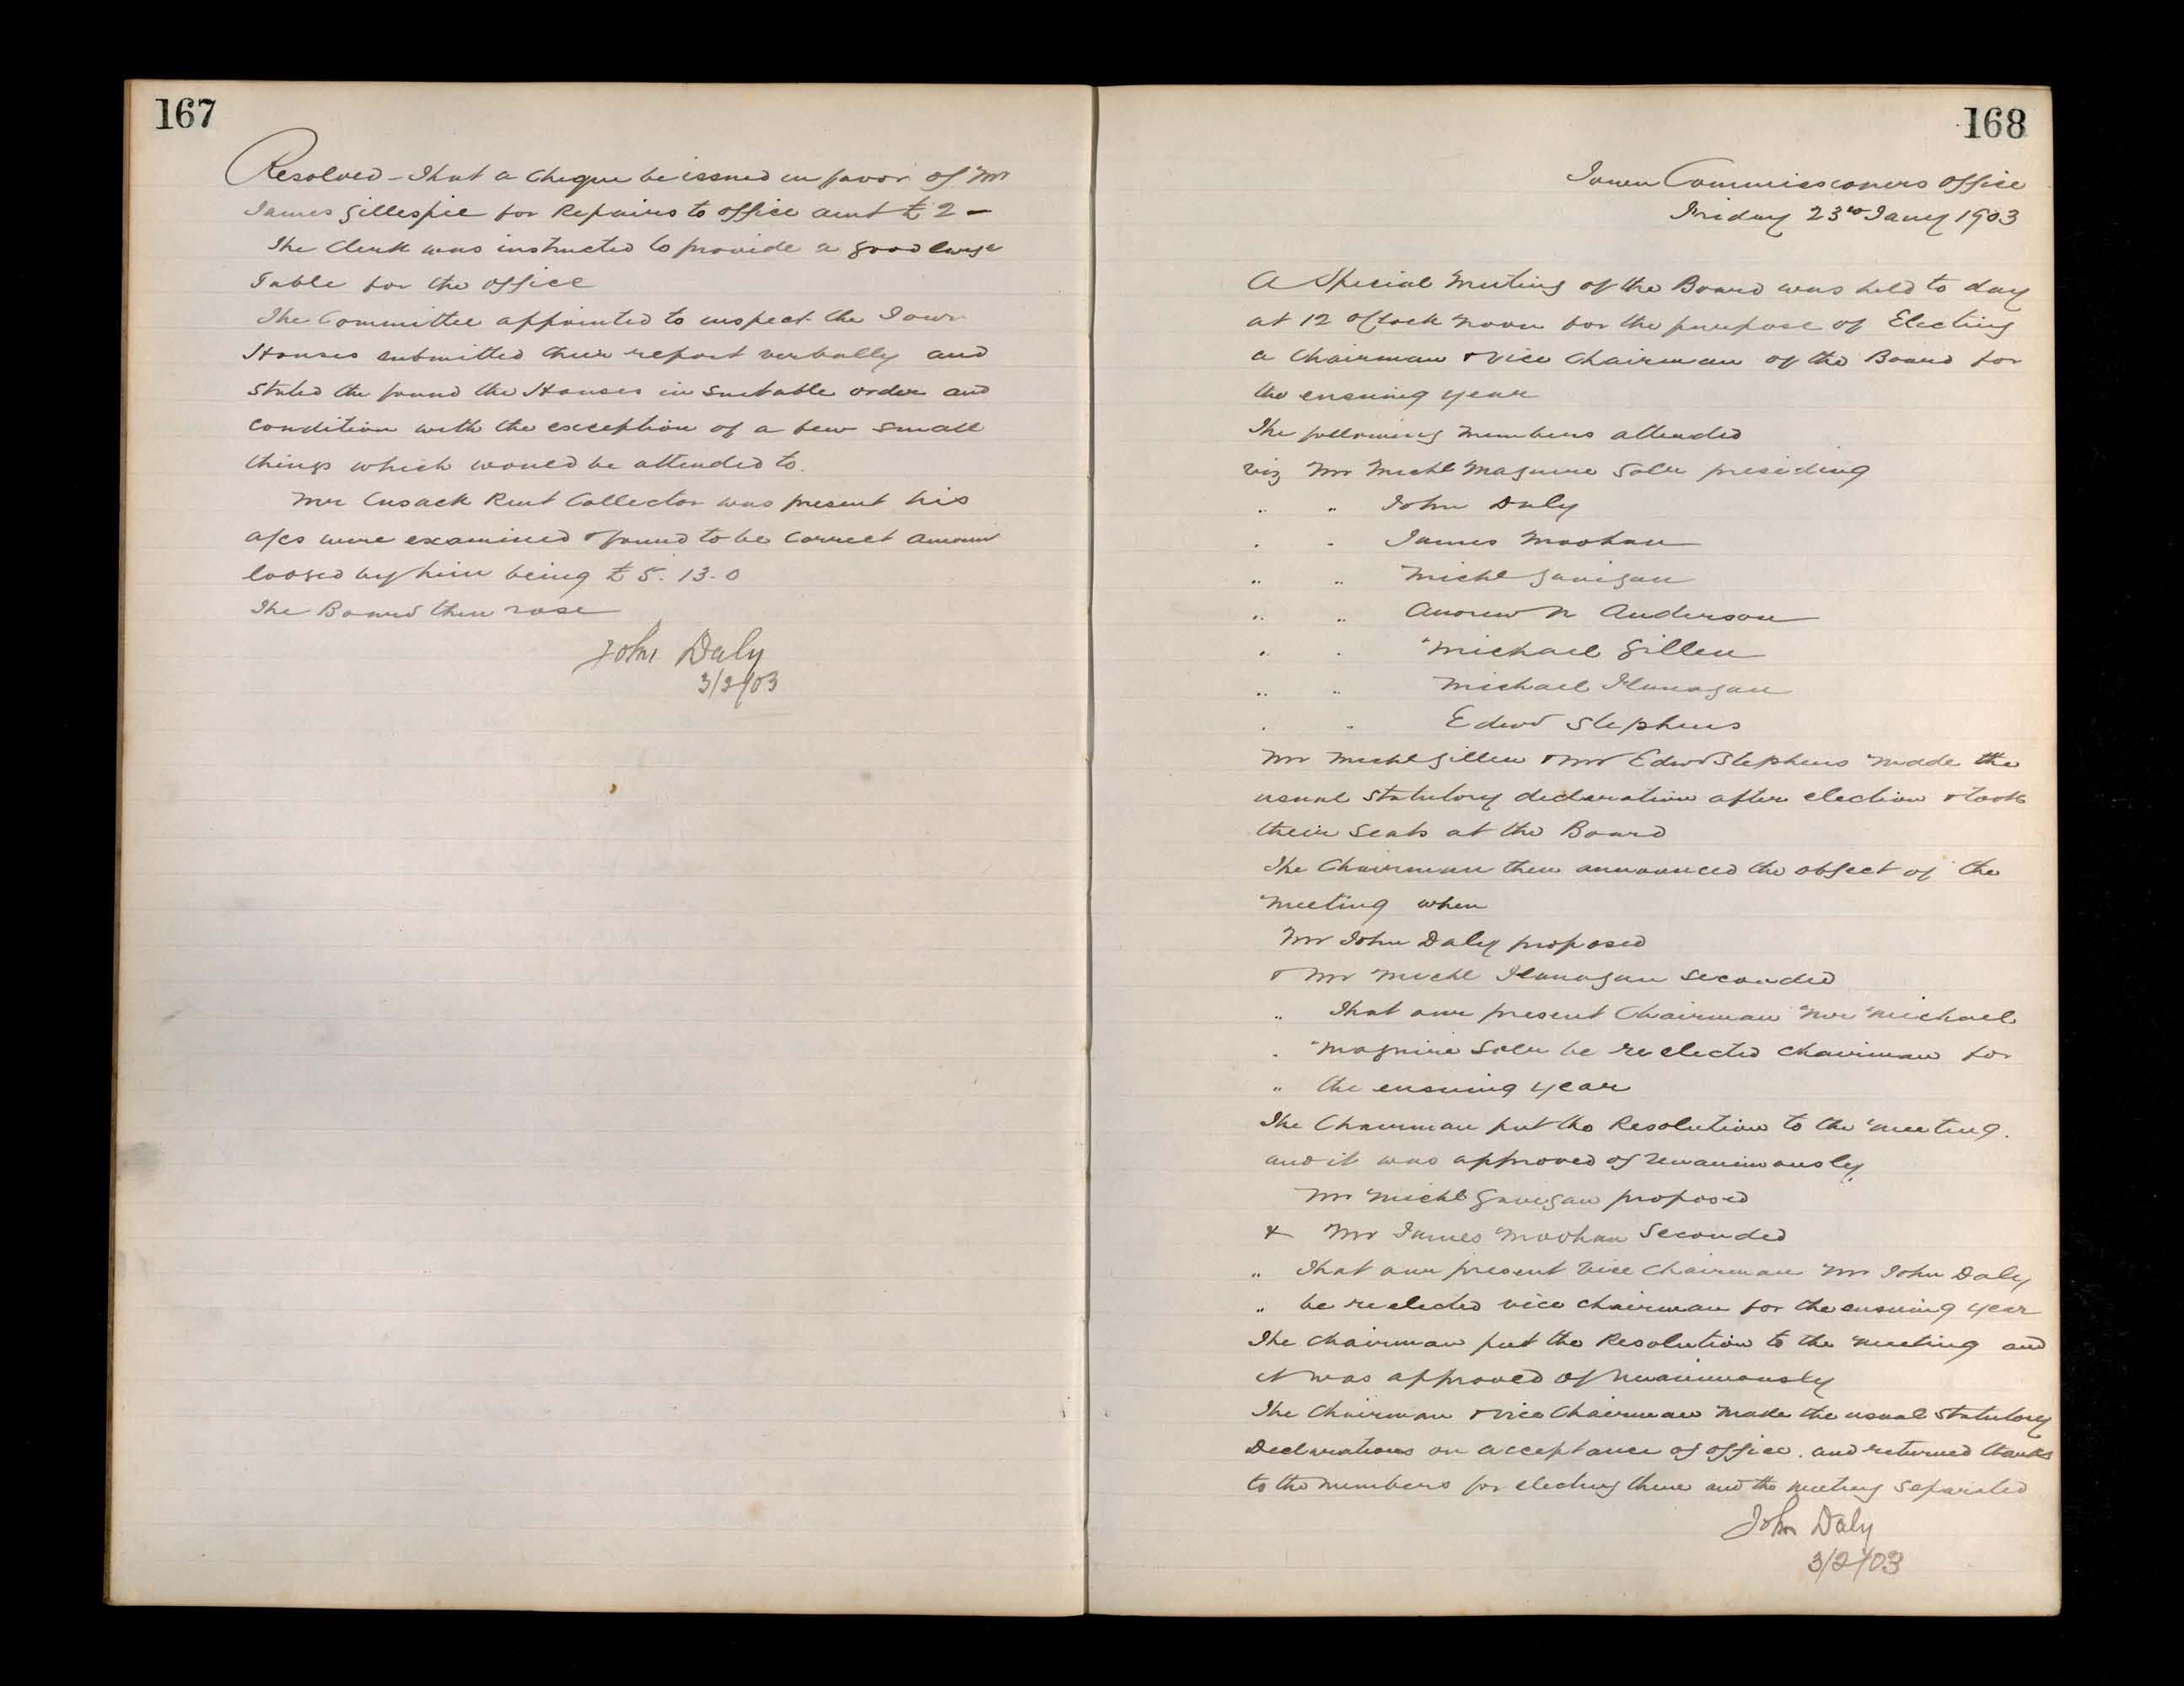 167
Resolved - That a cheque be issued in favor of Mr
James Gillespie for Repairs to office amt £ 2 -
The Clerk was instructed to provide a good large
Table for the office
The Committee appointed to inspect the Town
Houses submitted their report verbally and
stated the found the Houses in suitable order and
condition with the exception of a few small
things which would be attended to.
Mr Cusack Rent Collector was present his
a/cs were examined & found to be correct amount
lodged by him being £ 5. 13. 0
The Board then rose
John Daly
3/2/03
168
Town Commissioners office
Friday 23rd Jany 1903
A Special Meeting of the Board was held to day
at 12 Oclock noon for the purpose of Electing
a Chairman & vice Chairman of the Board for
the ensuing year
The following members attended
viz Mr Michl Maguire Solr presiding
" " John Daly
" " James Moohan
" " Michl Gavigan
" " Andrew N Anderson
" " Michael Gillen
" " Michael Flanagan
" " Edwd Stephens
Mr Michl Gillen & Mr Edwd Stephens made the
usual statutory declaration after election & took
their seats at the Board
The Chairman then announced the object of the
meeting when
Mr John Daly proposed
& Mr Michl Flanagan seconded
" That our present Chairman Mr Michael
" Maguire Solr be re elected chairman for
" the ensuing year
The Chairman put the Resolution to the meeting.
and it was approved of unanimously.
Mr Michl Gavigan proposed
& Mr James Moohan Seconded
" That our present Vice Chairman Mr John Daly
" be re elected vice chairman for the ensuing year
The Chairman put the Resolution to the meeting and
it was approved of unanimously
The Chairman & vice Chairman made the usual statutory
Declarations on acceptance of office. and returned thanks
to the members for electing them and the meeting separated
John Daly
3/2/03